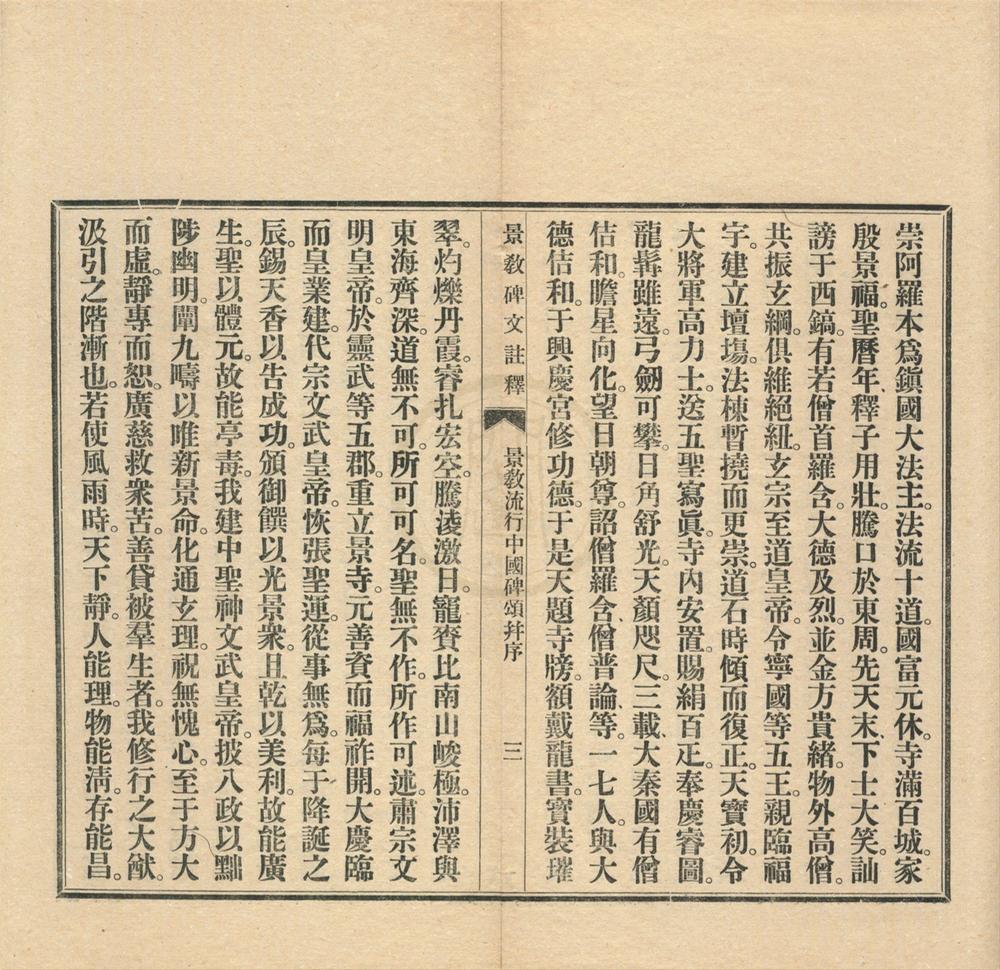 崇阿羅本爲鎭國大法主。法流十道。國富元休。寺滿百城。家
殷景福。聖曆年。釋子用壯。騰口於東周。先天末、下士大笑。訕
謗于西鎬。有若僧首羅含。大德及烈。並金方貴緒。物外高僧。
共振玄綱。俱維絕紐。玄宗至道皇帝令寧國等五王。親臨福
宇。建立壇塲。法棟暫撓而更崇。道石時傾而復正。天寶初。令
大將軍高力士。送五聖寫眞。寺內安置。賜絹百疋。奉慶睿圖。
龍髯雖遠。弓劒可攀。日角舒光。天顏咫尺。三載、大秦國有僧
佶和。瞻星向化。望日朝尊。詔僧羅含、僧普論等、一七人。與大
德佶和。于興慶宮修功德。于是天題寺牓。額戴龍書。寶裝璀
景教碑文註釋 景教流行中國碑頌幷序 三
翠。灼爍丹霞。睿扎宏空。騰凌激日。寵賚比南山峻極。沛澤與
東海齊深。道無不可。所可可名。聖無不作。所作可述。肅宗文
明皇帝。於靈武等五郡。重立景寺。元善資而福祚開。大慶臨
而皇業建。代宗文武皇帝。恢張聖運。從事無爲。每于降誕之
辰。錫天香以告成功。頒御饌以光景衆。且乾以美利。故能廣
生。聖以體元。故能亭毒。我建中聖神文武皇帝。披八政以黜
陟幽明。闡九疇以唯新景命。化通玄理。祝無愧心。至于方大
而虛。靜專而恕。廣慈救衆苦。善貸被羣生者。我修行之大猷。
汲引之階漸也。若使風雨時。天下靜。人能理。物能淸。存能昌。